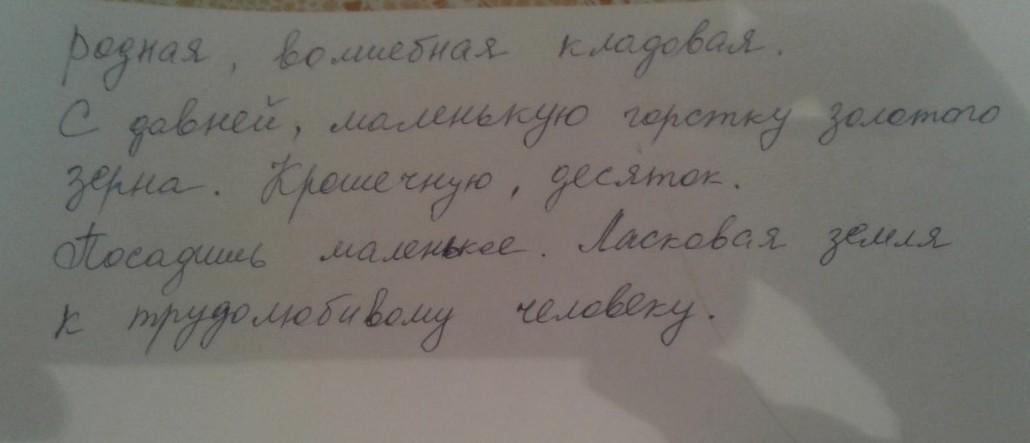 Родная, волшебная кладовая.
С давней, маленькую горстку золотого
зерна. Крошечную, десяток.
Посадишь маленькое. Ласковая земля
к трудолюбивому человеку.